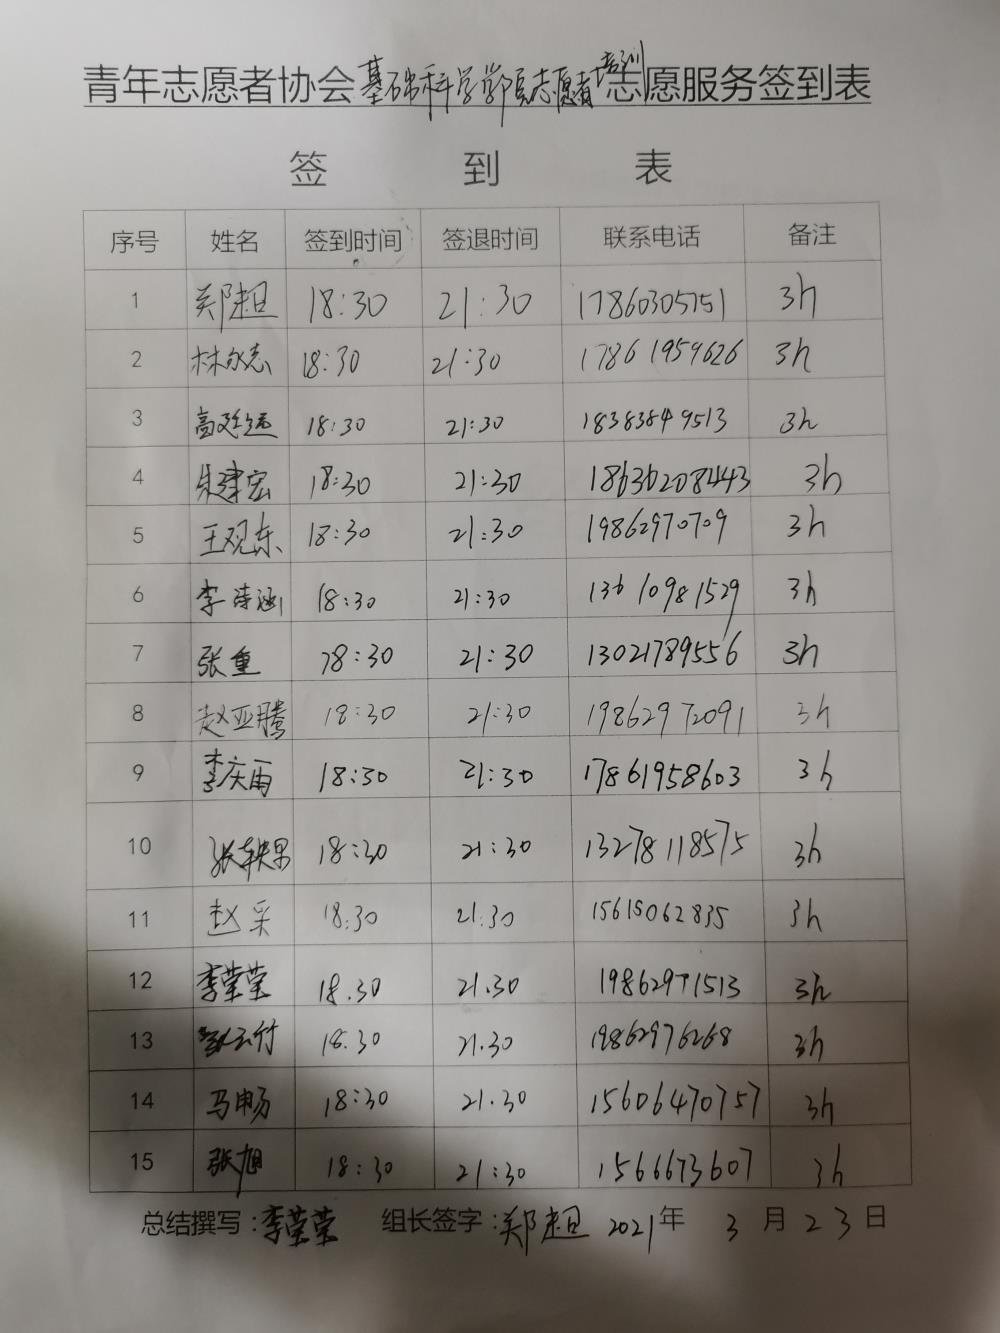 青年志愿者协会基础科学学院志愿者培训志愿服务签到表
签到表
序号 姓名 签到时间 签退时间 联系电话 备注
1 郑超 18:30 21:30 17860305751 3h
2 林永志 18:30 21:30 17861959626 3h
3 高延远 18:30 21:30 18383849513 3h
4 朱建宏 18:30 21:30 18636208443 3h
5 王观东 18:30 21:30 19862970709 3h
6 李诗涵 18:30 21:30 13610981529 3h
7 张重 18:30 21:30 13021789556 3h
8 赵亚腾 18:30 21:30 19862972091 3h
9 李庆雨 18:30 21:30 17861958603 3h
10 18:30 21:30 13278118575 3h
11 赵采 18:30 21:30 15615062835 3h
12 李莹莹 18.30 21.30 19862971513 3h
13 18.30 21.30 19862976268 3h
14 马畅 18:30 21.30 15606470757 3h
15 张旭 18:30 21:30 1566673607 3h
总结撰写:李莹莹 组长签字:郑超 2021年 3 月 23 日